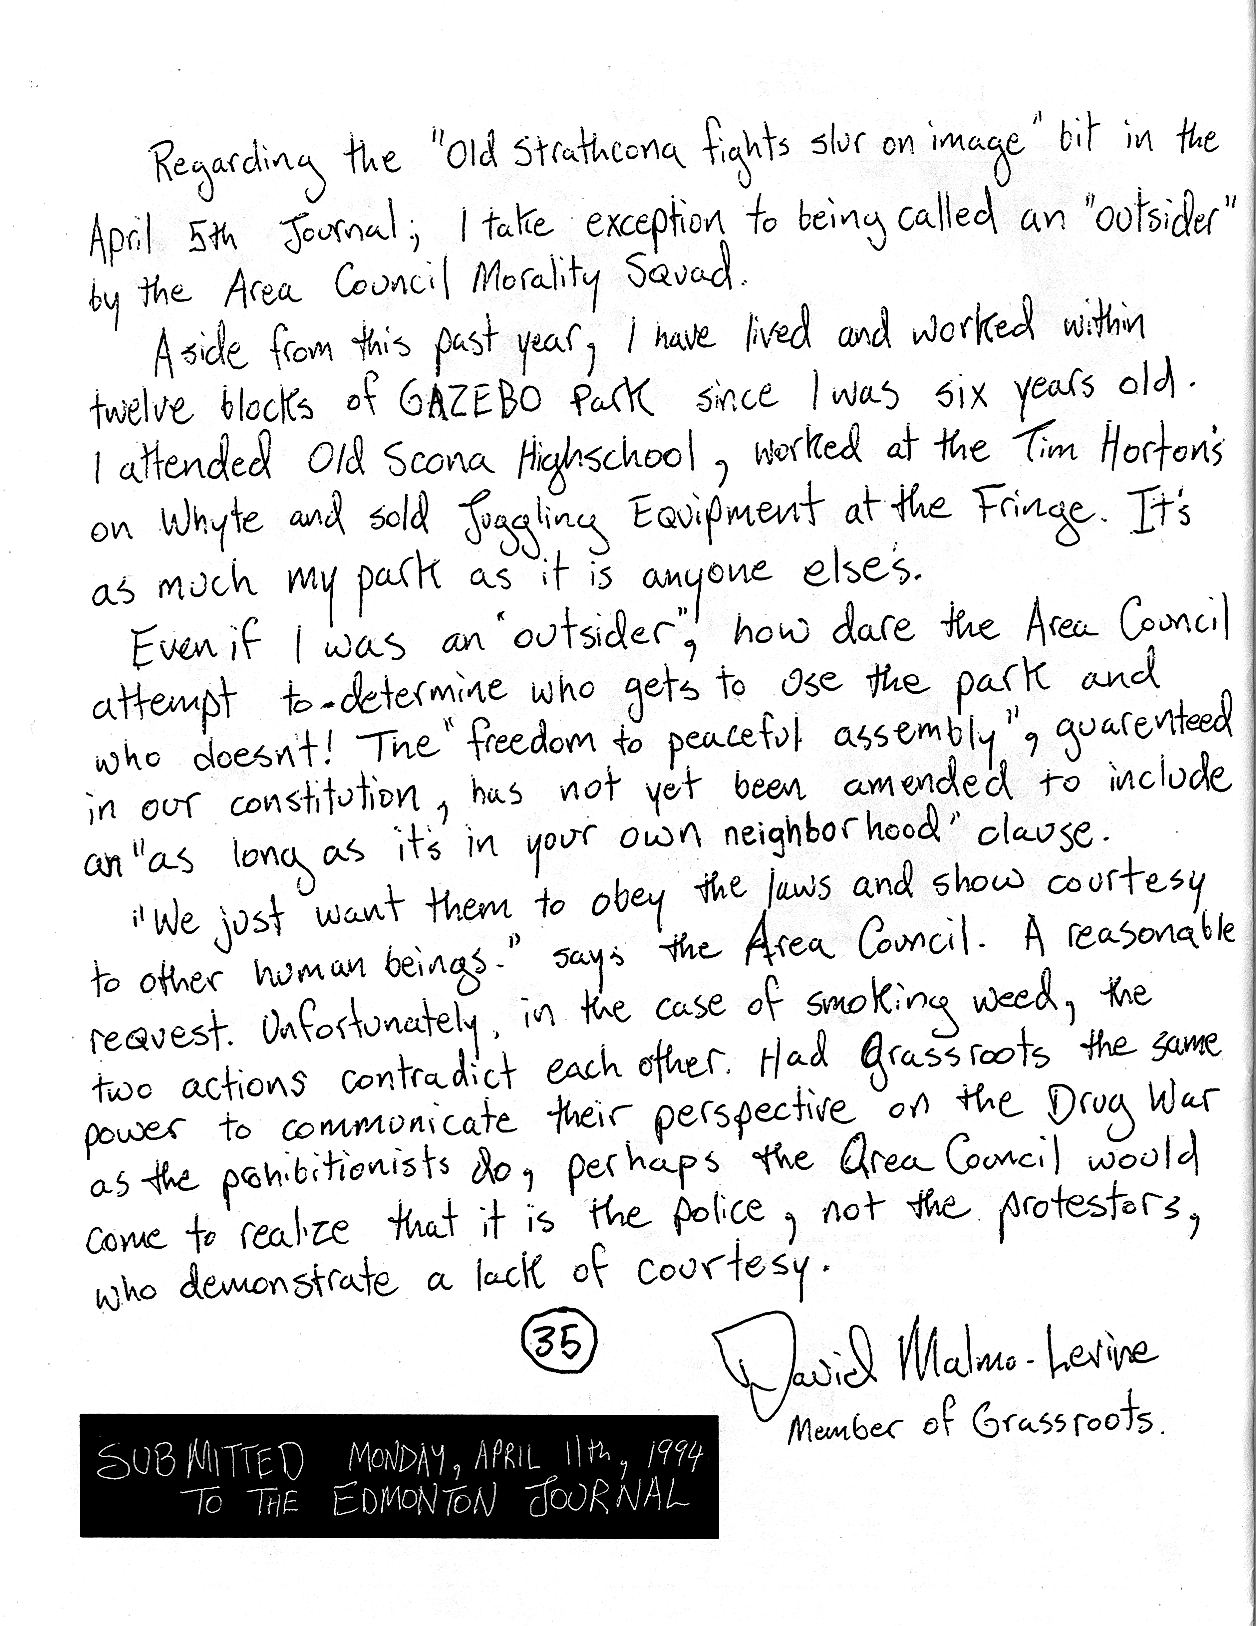 Regarding the "Old Strathcona fights slur on image" bit in the
April 5th Journal; I take exception to being called an "outsider"
by the Area Council Morality Squad.
Aside from this past year, I have lived and worked within
twelve blocks of GAZEBO Park since I was six years old.
I attended Old Scona Highschool, worked at the Tim Horton's
on Whyte and sold Juggling Equipment at the Fringe. It's
as much my park as it is anyone else's.
Even if I was an "outsider", how dare the Area Council
attempt to determine who gets to use the park and
who doesn't! The "freedom to peaceful assembly", guarenteed
in our constitution, has not yet been amended to include
an "as long as it's in your own neighborhood" clause.
"We just want them to obey the laws and show courtesy
to other human beings." says the Area Council. A reasonable
request. Unfortunately, in the case of smoking weed, the
two actions contradict each other. Had Grassroots the same
power to communicate their perspective on the Drug War
as the prohibitionists do, perhaps the Area Council would
come to realize that it is the police, not the protestors,
who demonstrate a lack of courtesy.
35
David Malmo-Levine
Member of Grassroots.
SUBMITTED MONDAY, APRIL 11th, 1994
TO THE EDMONTON JOURNAL